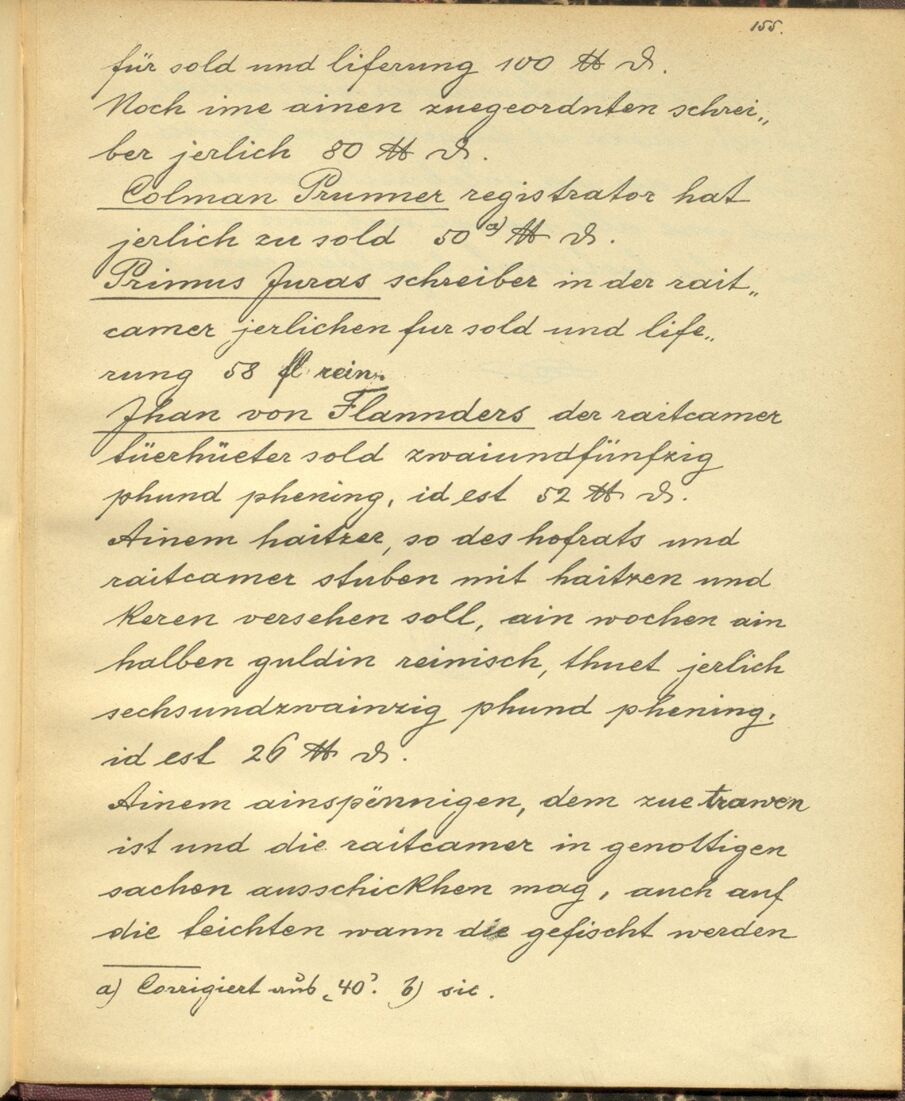 155.
für sold und liferung 100 ℔ ₰.
Noch ime ainen zuegeordnten schrei„
ber jerlich 80 ℔ ₰.
Colman Prunner registrator hat
jerlich zu sold 50 a) ℔ ₰.
Primus Juras schreiber in der rait„
camer jerlichen fur sold und life„
rung 58 fl rein.
Jhan von Flannders der raitcamer
tüerhüeter sold zwaiundfünfzig
phund phening, id est 52 ℔ ₰.
Ainem haitzer, so des hofrats und
raitcamer stuben mit haitzen und
keren versehen soll, ain wochen ain
halben guldin reinisch, thuet jerlich
sechsundzwainzig phund phening,
id est 26 ℔ ₰.
Ainem ainspënnigen, dem zue trawen
ist und die raitcamer in genottigen
sachen ausschickhen mag, auch auf
die teichten wann die gefischt werden
a) Corrigiert aus „40". b) sic.